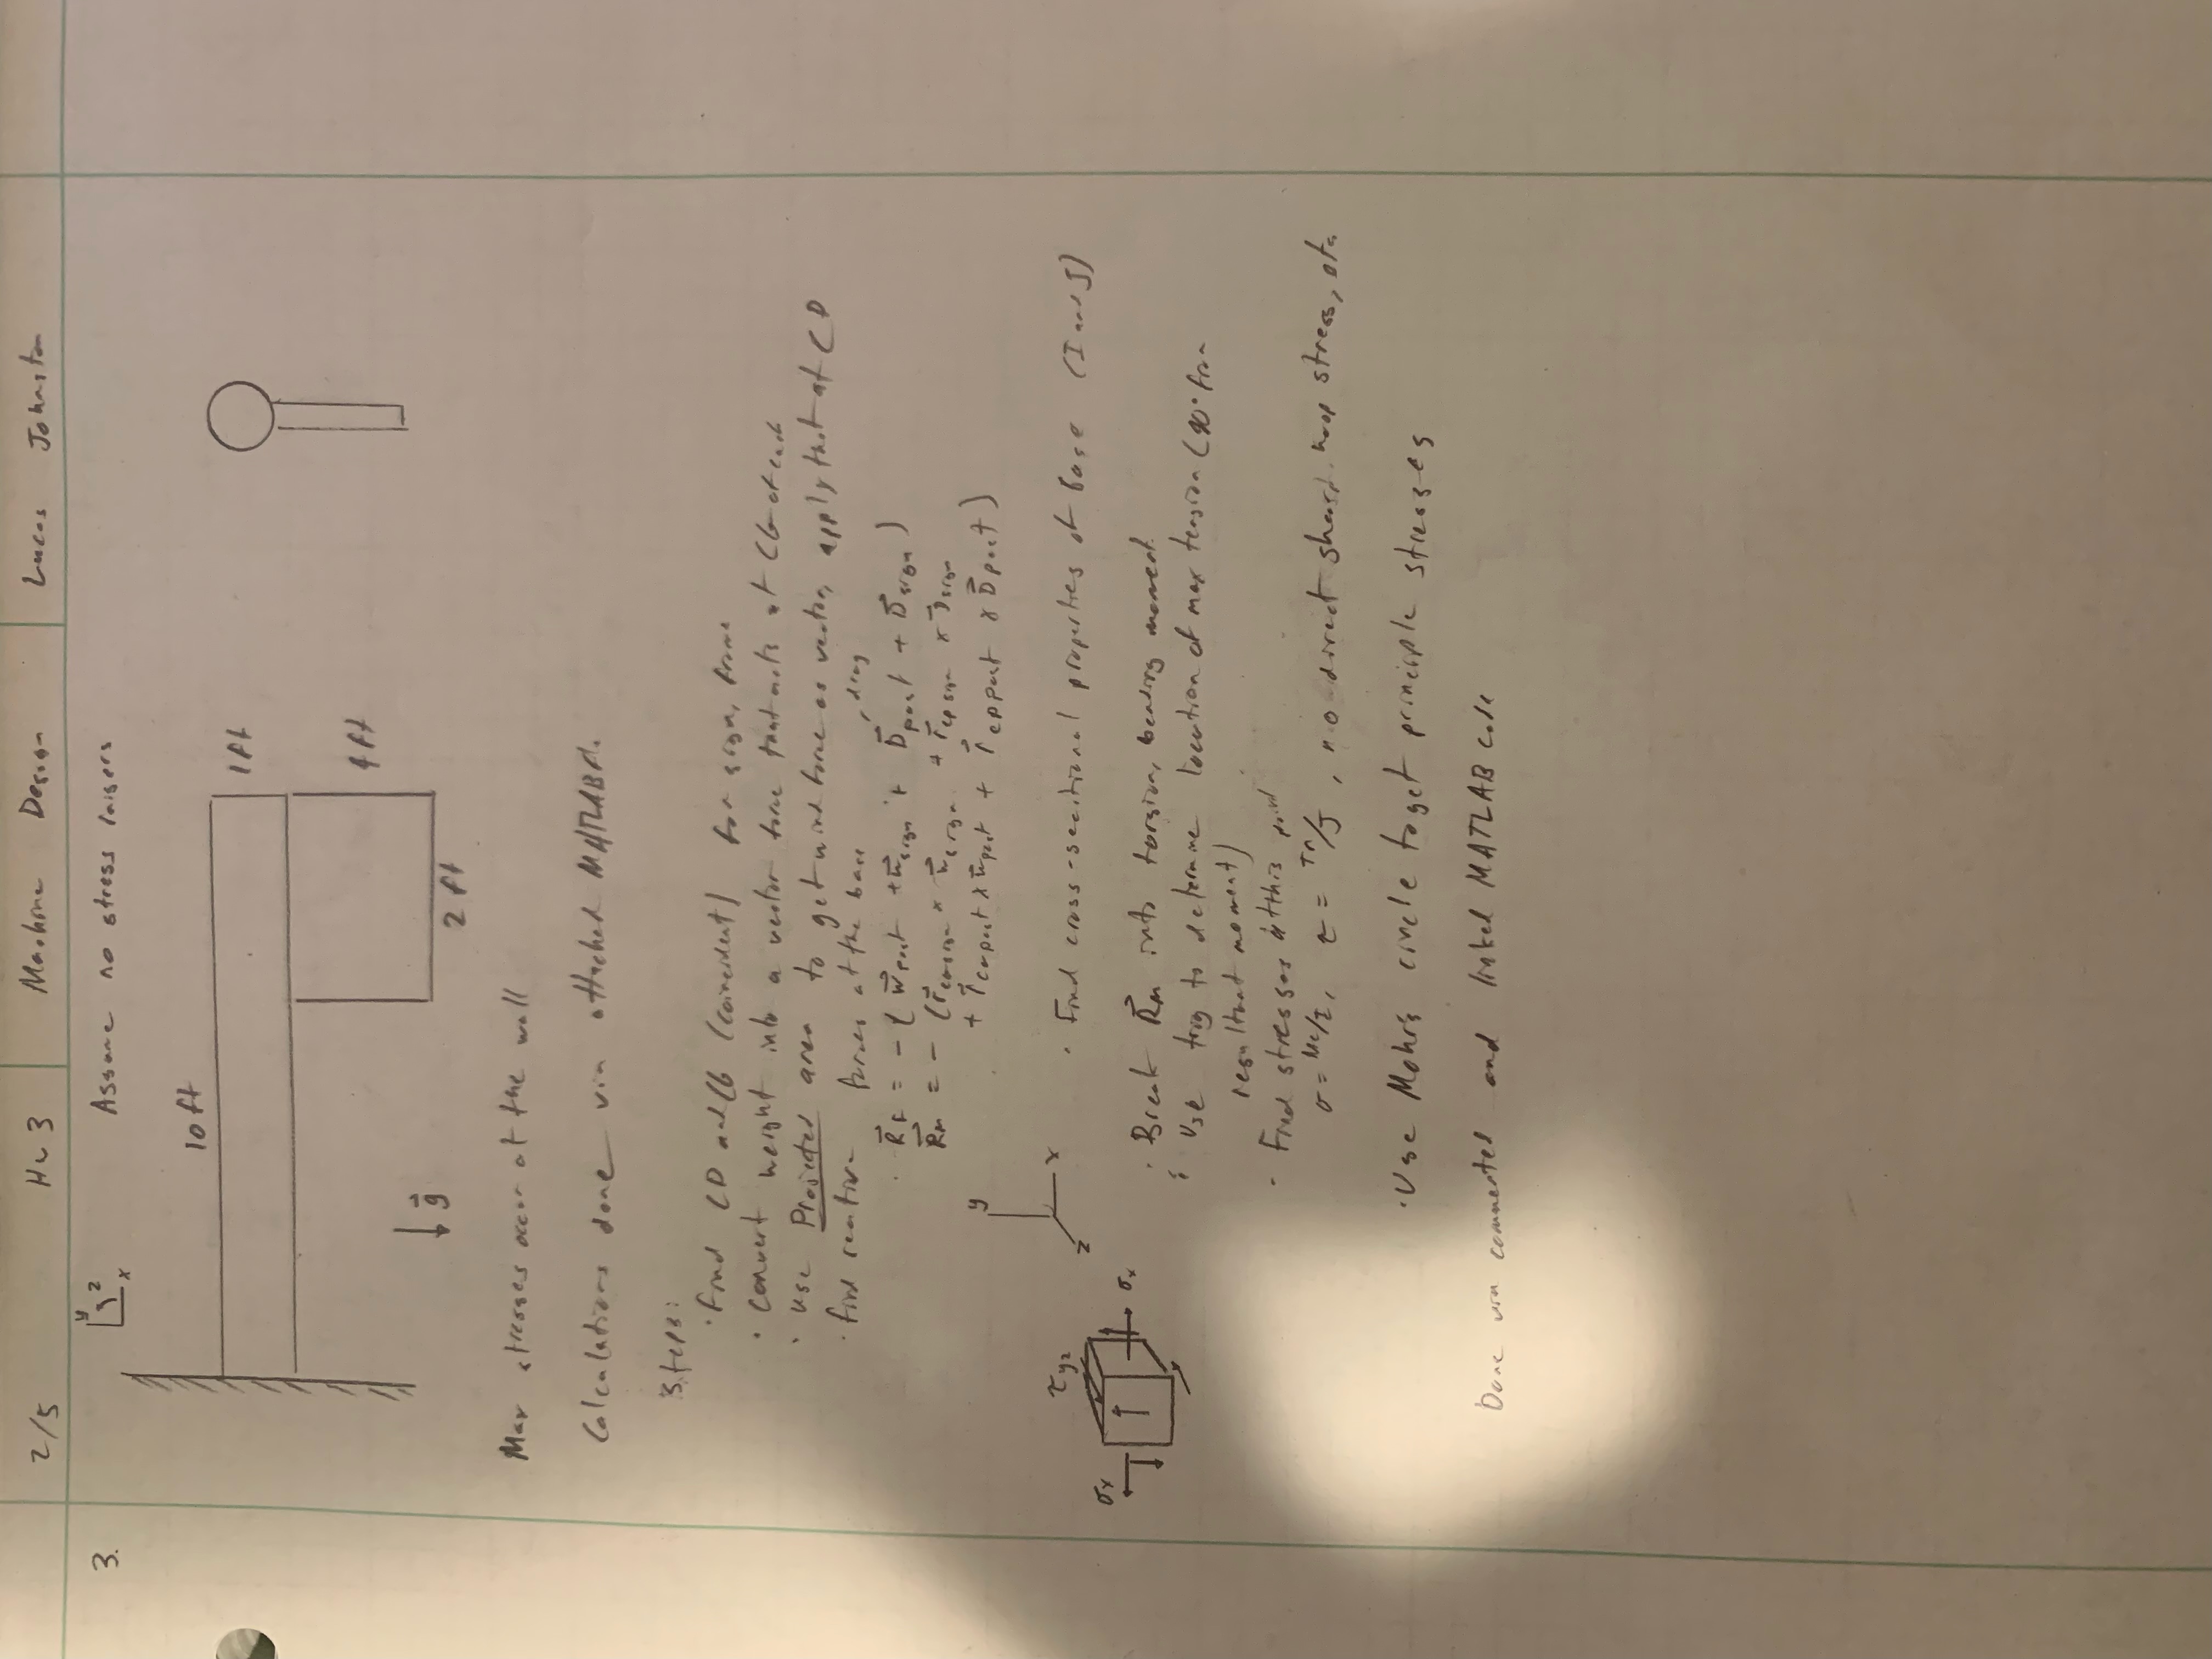 2/5 Hw 3 Machine Design Lucas Johnston
3.
y z x
Assume no stress raisers
10 ft
1 ft
4 ft
g
2 ft
Max stresses occur at the wall
Calculations done via attached MATLAB
Steps:
· Find CP and CG (coincident) for sign, frame
· Convert weight into a vector force that acts at CG of each
· Use Projected area to get wind force as vector, apply that at CP
· find reaction forces at the base
, drag
· R⃗F = - ( W⃗post + W⃗sign + D⃗post + D⃗sign )
R⃗m = - ( r⃗cgsign × W⃗sign + r⃗cpsign × D⃗sign
+ r⃗cgpost × W⃗post + r⃗cppost × D⃗post )
y
x
z
τyz
σx
σx
· Find cross-sectional properties of base (I and J)
· Break R⃗m into torsion, bending moment
· Use trig to determine location of max tension (90° from
resultant moment)
· Find stresses at this point
σ = Mc/I, τ = Tr/J, no direct shear, hoop stress, etc
· Use Mohr's circle to get principle stresses
Done via commented and linked MATLAB code